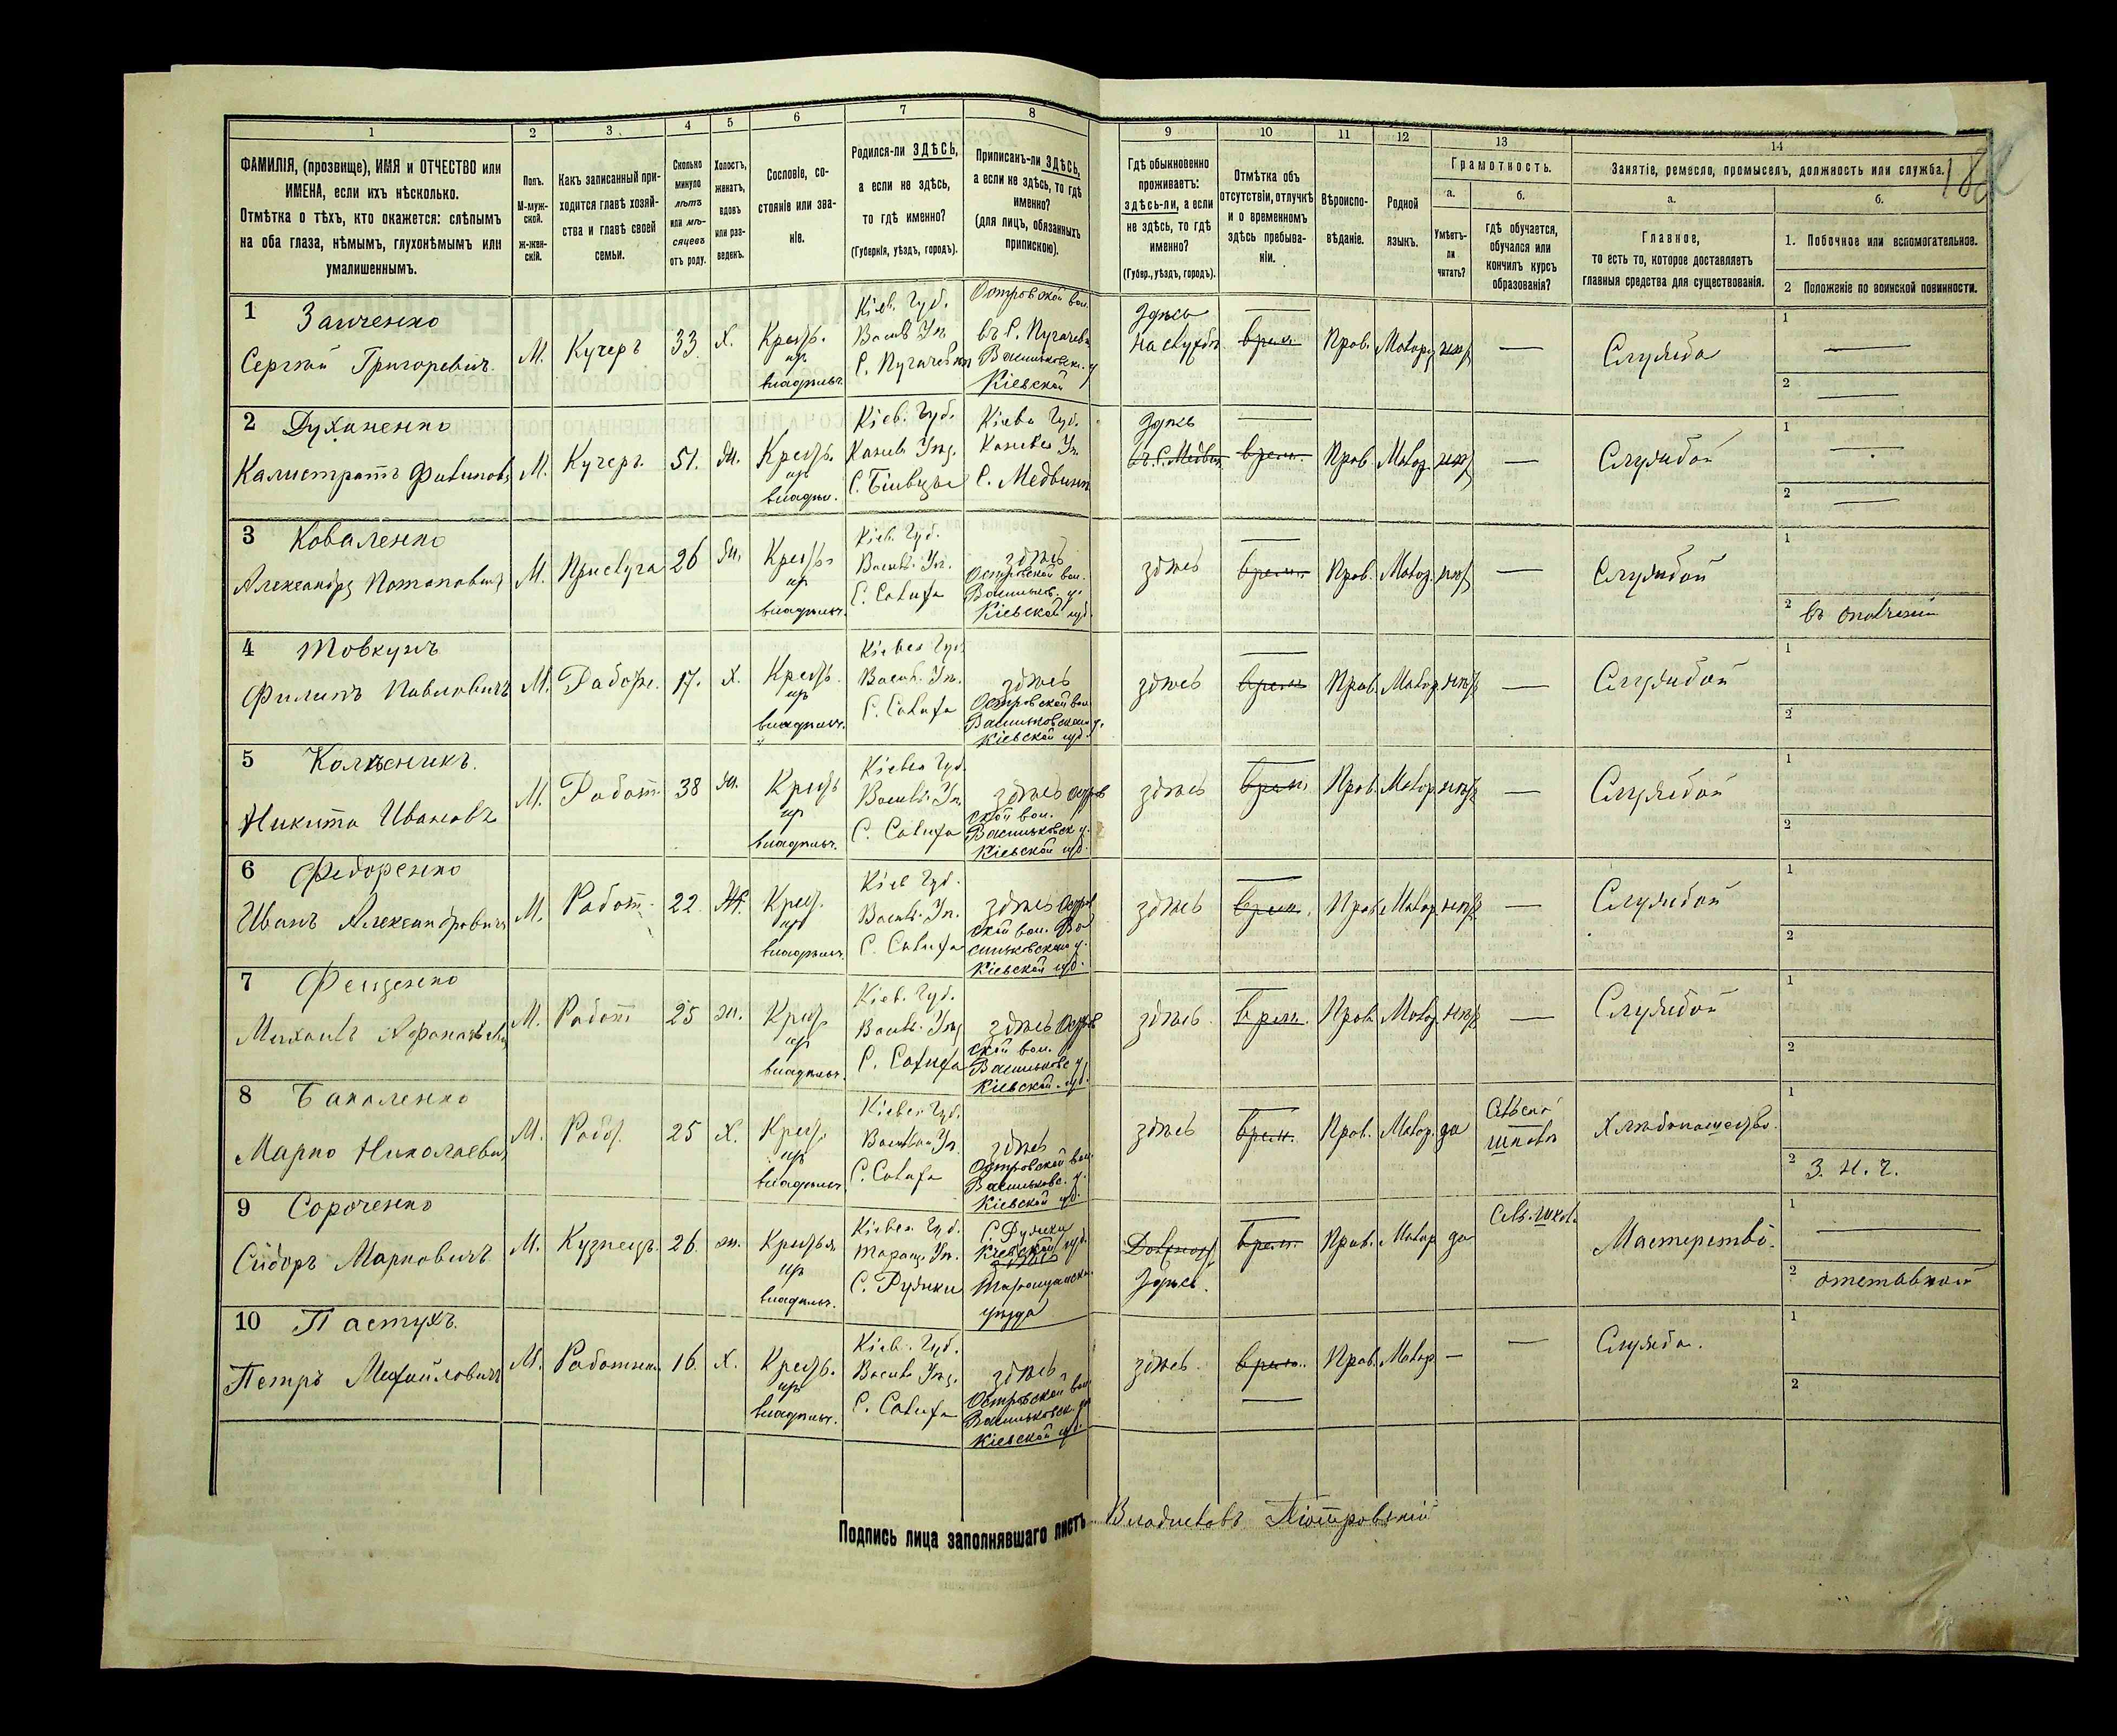 1 2 3 4 5 6 7 8 9 10 11 12 13 14
ФАМИЛІЯ, (прозвище), ИМЯ и ОТЧЕСТВО или
ИМЕНА, если ихъ нѣсколько.
Отмѣтка о тѣхъ, кто окажется: слѣпымъ
на оба глаза, нѣмымъ, глухонѣмымъ или
умалишеннымъ.
Полъ.
М-муж-
ской.
Ж-жен-
скій.
Какъ записанный при-
ходится главѣ хозяй-
ства и главѣ своей
семьи.
Сколько
минуло
лѣтъ
или мѣ-
сяцевъ
отъ роду.
Холостъ,
женатъ,
вдовъ
или раз-
веденъ.
Сословіе, со-
стояніе или зва-
ніе.
Родился-ли ЗДѢСЬ,
а если не здѣсь,
то гдѣ именно?
(Губернія, уѣздъ, городъ).
Приписанъ-ли ЗДѢСЬ,
а если не здѣсь, то гдѣ
именно?
(для лицъ, обязанныхъ
припискою).
Гдѣ обыкновенно
проживаетъ:
здѣсь-ли, а если
не здѣсь, то гдѣ
именно?
(Губер., уѣздъ, городъ).
Отмѣтка объ
отсутствіи, отлучкѣ
и о временномъ
здѣсь пребыва-
ніи.
Вѣроиспо-
вѣданіе.
Родной
языкъ.
Грамотность.
а.
Умѣетъ-
ли
читать?
б.
гдѣ обучается,
обучался или
кончилъ курсъ
образованія?
Занятіе, ремесло, промыселъ, должность или служба.
а.
Главное,
то есть то, которое доставляетъ
главныя средства для существованія.
б.
1. Побочное или вспомогательное.
2 Положеніе по воинской повинности.
1 Заиченко
Сергѣй Григоревичъ. М. Кучеръ 33 х. Крест.
Кіев. Губ.
Островской вол.
въ С. Пугачевк
Кіевской
Здѣсь
на службѣ врем. Прав. Малор. Служба
1
2
2 Духаненко
Калистратъ М. Кучеръ. 51. Крест.
Кіев. Губ.
Канев. Уѣз.
Кіевс Губ.
С. Медвинъ
Здѣсь
врем. Прав. Малор. Службой
1
2
3 Коваленко
Александр Потапович М. Прислуга 26 Крест.
Кіев. Губ.
Васил. Уѣ.
С. Салиха
здѣсь
Островской вол.
Васильков. у.
Кіевской губ.
здѣсь врем. Прав. Малор. Службой
1
2 въ ополченіи
4 Товкунъ
Филипъ Павловичъ М. Работн. 17. х. Крест.
Васил. Уѣ.
С. Салиха
здѣсь
Островской вол.
Васильковскаго у.
Кіевской губ.
здѣсь врем Прав. Малор. Службой
1
2
5 Колѣсникъ.
Никита Ивановъ М. Работ. 38 Крест
С. Салиха
здѣсь Остров
ской вол.
Васильковск у.
Кіевской губ.
здѣсь врем. Прав. Малор. Службой
1
2
6 Федоренко
Иванъ Александровичъ М. Работ. 22. Ж. Крест.
Кіев Губ.
Васил. Уѣ.
С. Салиха
здѣсь Остров
ской вол. Ва
сильковскаго у.
Кіевской губ.
здѣсь врем. Прав. Малор. Службой
1
2
7 Фещенко
Михаилъ М. Работ 25 ж. Крест
Кіев. Губ.
С. Салиха
здѣсь Остров
ской вол.
Васильковс у.
Кіевской губ.
здѣсь врем. Прав. Малор. Службой
1
2
8 Бакаленко
Марко Николаевич М. Работ. 25 х. Крест.
С. Салиха
здѣсь
Островской вол.
Васильковс. у.
Кіевской губ.
здѣсь врем. Прав. Малор. да Хлѣбопашество.
1
2 З. Н. Ч.
9 Сороченко
Сидоръ Марковичъ М. Кузнецъ. 26. ж.
Таращ. Уѣ.
С. Рудики
Кіевской губ.
Таращанска.
уѣзда
Здѣсь.
врем. Прав. Малор да Сел. школ. Мастерство.
1
2 отставной
10 Пастухъ.
Петръ Михайловичъ М. 16. х. Крест.
Кіев. Губ.
Васил Уѣз.
С. Салиха
здѣсь
Островской вол.
Кіевской губ.
здѣсь. врем. Прав. Малор. Служба.
1
2
Подпись лица заполнявшаго листъ Владиславъ Піотровскій